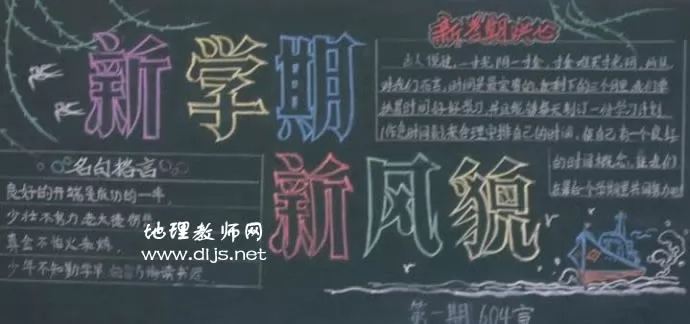 新学期
新学期决心
古人很说，一寸光阴一寸金，寸金难买寸光阴，所以
对我们而言，时间是最宝贵的，在剩下的三个月里，我们要
抓紧时间好好学习，并且能够每天制订一份学习计划
(作息时间表)，来合理安排自己的时间，使自己有一个良好
的时间概念，让我们
在最后一个学期里共同努力吧!
名句格言
良好的开端是成功的一半。
少壮不努力 老大徒伤悲
真金不怕火来炼
少年不知勤学早 白首方悔读书迟
新风貌
地理教师网
www.dljs.net
第一期 604宣